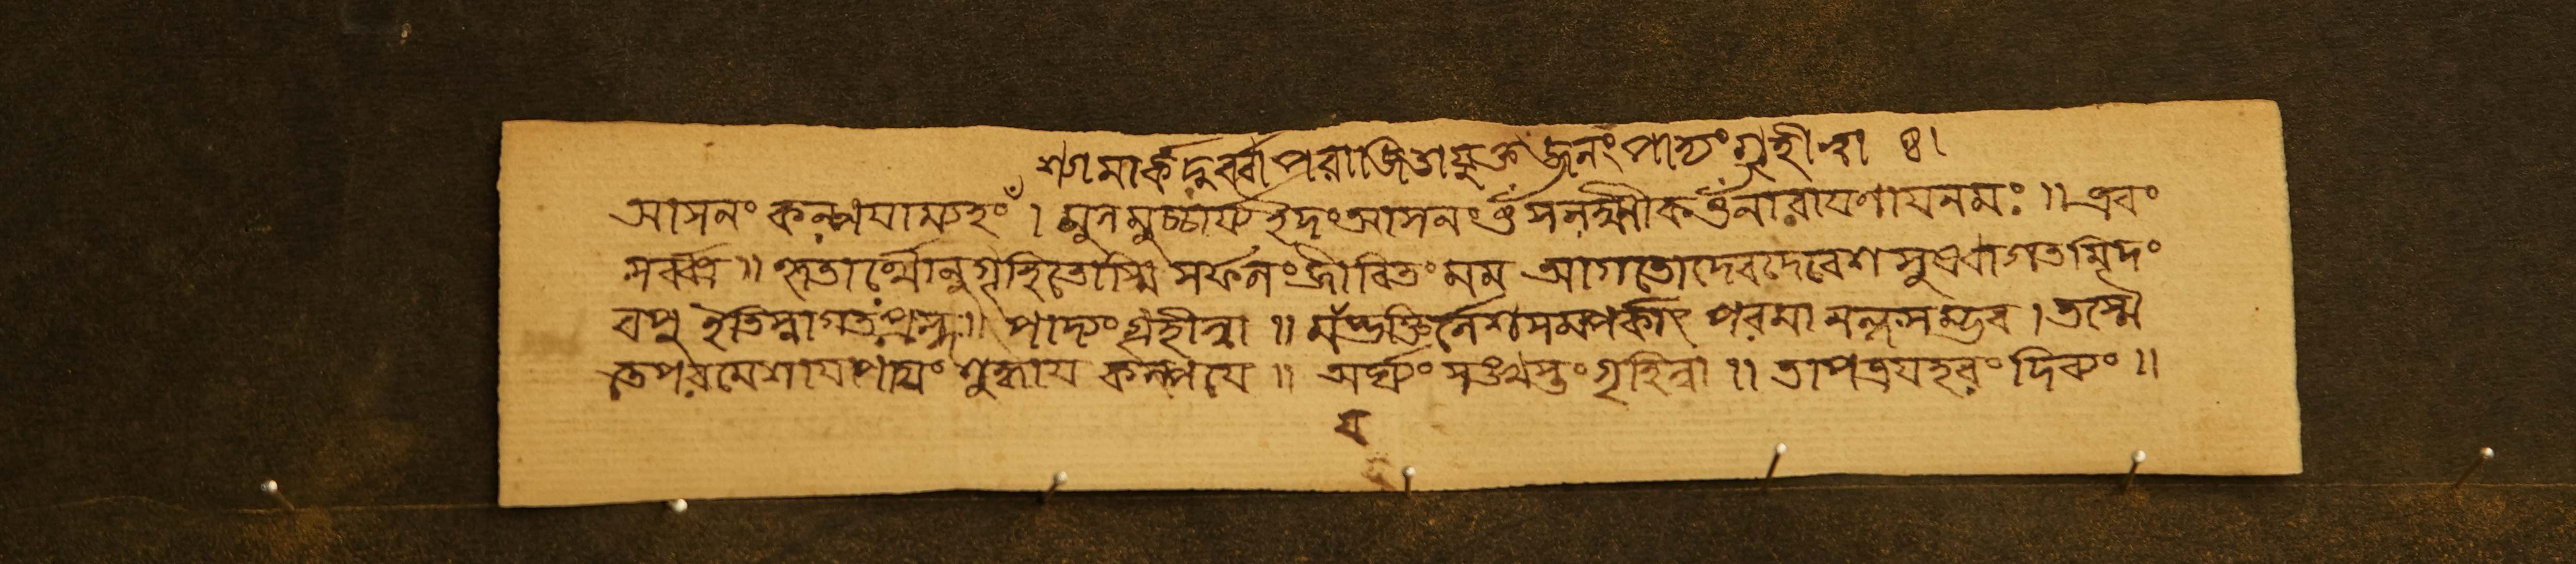 শ্যামার্কদুর্ব্বাপরাজিতাযুক্তজলং পাদ্যং গৃহীত্বা ৪।
আসনং কল্পয়াম্যহং। মুলমুচ্চার্য্য ইদং আসনং ওঁ সলক্ষ্মীক ওঁ নারায়ণায় নমঃ॥ এবং
সর্ব্বত্র॥ কৃতার্থোনুগৃহিতোস্মি সফলং জীবিতং মম আগতোদেবদেবেশ সুস্বাগতমিদং
বপু ইতি স্বাগতপ্রশ্নঃ॥ পাদ্যং গৃহীত্বা॥ যদ্ভক্তিলেশসম্পর্কাৎ পরমানন্দসম্ভব। তস্মৈ
তে পরমেশায় পাদ্যং শুদ্ধায় কল্পয়ে॥ অর্ঘ্যং গৃহিত্বা॥ তাপত্রয়হরং দিব্যং॥